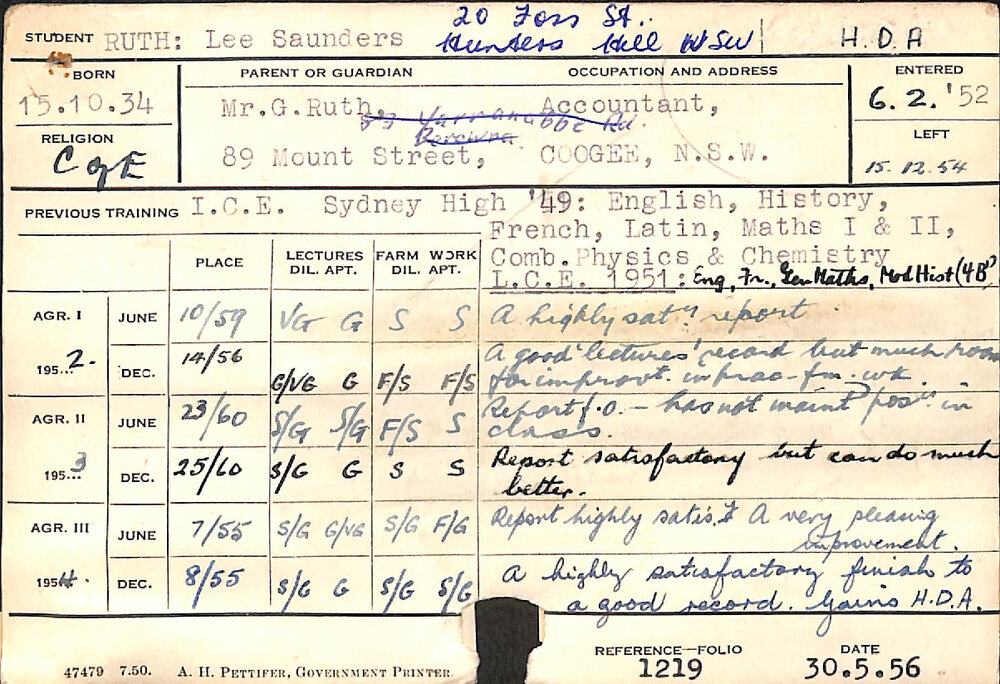 20 Foss St.
STUDENT RUTH: Lee Saunders Hunters Hill NSW H.D.A
BORN PARENT OR GUARDIAN OCCUPATION AND ADDRESS ENTERED
15.10.34 Mr.G.Ruth, Accountant, 6.2.'52
RELIGION LEFT
C of E 89 Mount Street, COOGEE, N.S.W. 15.12.54
PREVIOUS TRAINING I.C.E. Sydney High '49: English, History,
French, Latin, Maths I & II,
Comb.Physics & Chemistry
L.C.E. 1951: Eng, Fr., Gen Maths, Mod Hist (4B')
PLACE LECTURES FARM WORK
DIL. APT. DIL. APT.
AGR. I JUNE 10/59 VG G S S A highly saty report
1952. DEC. 14/56 G/VG G F/S F/S A good 'lectures' record but much room
for improvt. in prac. fm. wk.
AGR. II JUNE 23/60 S/G S/G F/S S Report f.o. – has not maint posn in
class.
1953 DEC. 25/60 S/G G S S Report satisfactory but can do much
better.
AGR. III JUNE 7/55 S/G G/VG S/G F/G Report highly satis. A very pleasing
improvement.
1954. DEC. 8/55 S/G G S/G S/G A highly satisfactory finish to
a good record. Gains H.D.A.
REFERENCE—FOLIO DATE
47479 7.50. A. H. PETTIFER, GOVERNMENT PRINTER. 1219 30.5.56